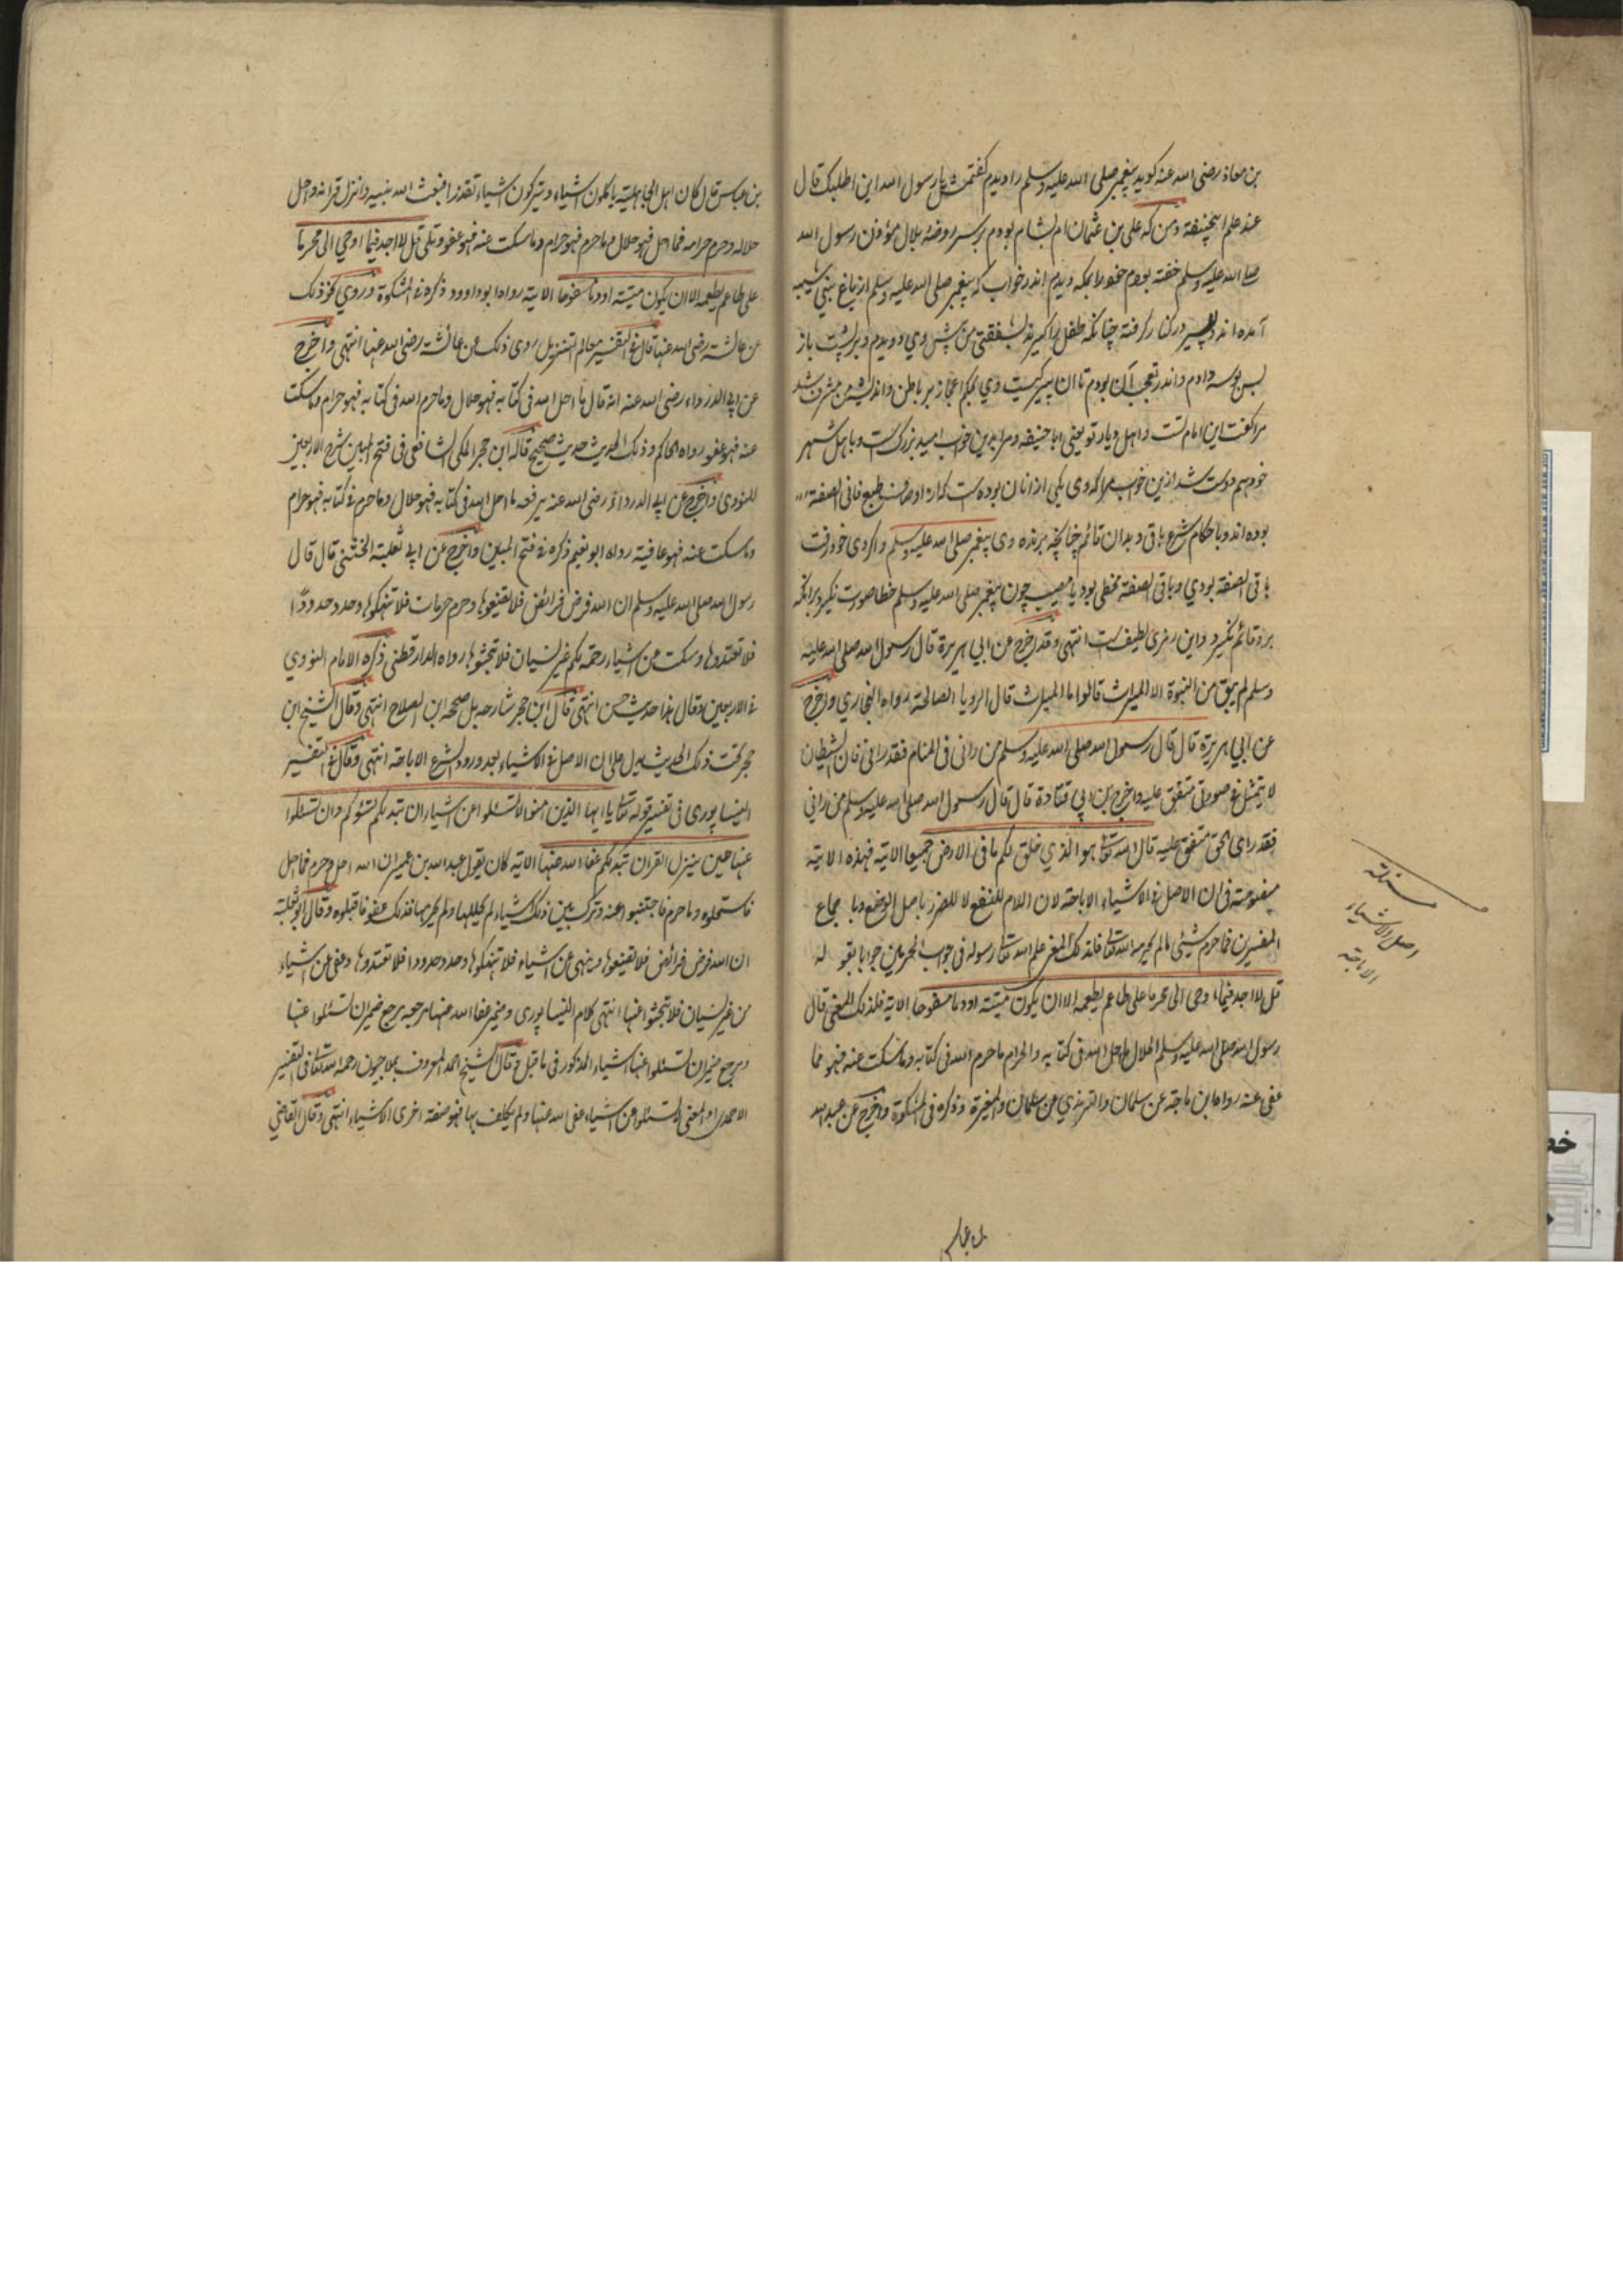 بن معاذ رضی الله عنه کوید پیغمبر صلی الله علیه وسلم را دیدم کفتمش یا رسول الله این اطلبک قال
عند علم ابیحنیفة ومن که علی بن عثمان ام بشام بودم بر سر روضه بلال مؤذن رسول الله
صلی الله علیه وسلم خفته بودم خود را بمکه دیدم اندر خواب که پیغمبر صلی الله علیه وسلم از باب بنی شیبه
آمده اند و پیر در کنار کرفته چنانکه طفل را کیرند بشفقتی من پیش وی دویدم و بر پشت پای
بوسه دادم و اندر تعجب آن بودم تا ان پیر کیست وی بحکم اعجاز بر باطن و اندیشه من مشرف شد
مرا کفت این امام تست و اهل دیار تو یعنی ابا حنیفه و مرا بدین خواب امید بزرک است و با اهل شهر
خود هم درست شد ازین خواب مرا که وی یکی از انان بوده است که از اوصاف طبع فانی الصفة
بوده اند و باحکام شرع باقی و بدان قائم چنانچه برنده وی پیغمبر صلی الله علیه وسلم و اکر وی خود رفت
باقی الصفة بودی و باقی الصفة مخطی بود یا مصیب چون پیغمبر صلی الله علیه وسلم خطا صورت نکیرد بر انکه
بدو قائم نکیرد و این رمزی لطیف است انتهی وقد اخرج عن ابی هریرة قال رسول الله صلی الله علیه
وسلم لم یبق من النبوة الا المبشرات قالوا ما المبشرات قال الرویا الصالحة رواه البخاری واخرج
عن ابی هریرة قال قال رسول الله صلی الله علیه وسلم من رانی فی المنام فقد رانی فان الشیطان
لا یتمثل فی صورتی متفق علیه واخرج بن ابی قتادة قال قال رسول الله صلی الله علیه وسلم من رانی
فقد رای الحق متفق علیه قال الله تعا هو الذی خلق لکم ما فی الارض جمیعا الایة فهذه الایة
فی ان الاصل فی الاشیاء الاباحة لان اللام للنفع لا للضرر باصل الوضع و باجماع
المفسرین فما حرم شیئی ما لم یحرمه الله تعا فلذلک المعنی علم الله تعا رسوله فی جواب المحرمین جوابا بقوله
قل لا اجد فیما اوحی الی محرما علی طاعم یطعمه الا ان یکون میتة او دما مسفوحا الایة فلذلک المعنی قال
رسول الله صلی الله علیه وسلم الحلال ما احل الله فی کتابه والحرام ما حرم الله فی کتابه وما سکت عنه فهو مما
عفی عنه رواه ابن ماجة عن سلمان والترمذی عن سلمان والمغیرة وذکره فی المشکوة واخرج عن عبد الله
بن عباس
مسئلة
اصل الاشیاء
الاباحة
بن عباس قال کان اهل الجاهلیة یاکلون اشیاء ویترکون اشیاء تقذرا فبعث الله نبیه وانزل قرانه واحل
حلاله وحرم حرامه فما احل فهو حلال وما حرم فهو حرام وما سکت عنه فهو عفو وتلی قل لا اجد فیما اوحی الی محرما
علی طاعم یطعمه الا ان یکون میتة او دما مسفوحا الایة رواه ابو داوود ذکره فی المشکوة وروی نحو ذلک
عن عائشة رضی الله عنها قال فی التفسیر معالم التنزیل روی ذلک عن عائشة رضی الله عنها انتهی واخرج
عن ابی الدرداء رضی الله عنه انه قال ما احل الله فی کتابه فهو حلال وما حرم الله فی کتابه فهو حرام وما سکت
عنه فهو عفو رواه الحاکم وذلک الحدیث حدیث صحیح قاله ابن حجر المکی الشافعی فی فتح المبین شرح الاربعین
للنووی واخرج عن ابی الدرداء رضی الله عنه یرفعه ما احل الله فی کتابه فهو حلال وما حرم فی کتابه فهو حرام
وما سکت عنه فهو عافیة رواه ابو نعیم ذکره فی فتح المبین واخرج عن ابی ثعلبة الخشنی قال قال
رسول الله صلی الله علیه وسلم ان الله فرض فرائض فلا تضیعوها وحرم حرمات فلا تنتهکوها وحد حدودًا
فلا تعتدوها وسکت عن اشیاء رحمة بکم غیر نسیان فلا تبحثوا ها رواه الدارقطنی ذکره الامام النووی
فی الاربعین وقال هذا حدیث حسن انتهی قال ابن حجر شارحه بل صححه ابن الصلاح انتهی وقال الشیخ ابن
حجر تحت ذلک الحدیث یدل علی ان الاصل فی الاشیاء بعد ورود الشرع الاباحة انتهی وقال فی التفسیر
النیسابوری فی تفسیر قوله تعا یا ایها الذین امنوا لا تسئلوا عن اشیاء ان تبدلکم تسؤکم وان تسئلوا
عنها حین ینزل القران تبدلکم عفا الله عنها الایة کان یقول عبد الله بن عمیر ان الله احل وحرم فما احل
فاستحلوه وما حرم فاجتنبوا عنه وترک بین ذلک اشیاء لم یحللها ولم یحرمها فذلک عفو فاقبلوه وقال ابو ثعلبة
ان الله فرض فرائض فلا تضیعوها ونهی عن اشیاء فلا تنتهکوها وحد حدودا فلا تعتدوها وعفی عن اشیاء
من غیر نسیان فلا تبحثوا عنها انتهی کلام النیسابوری وضمیر عفا الله عنها مرجعه یرجع ضمیر ان تسئلوا عنها
ویرجع ضمیر ان تسئلوا عنها اشیاء المذکور فی ما قبل وقال الشیخ احمد المعروف بملا جیون رحمه الله تعا فی التفسیر
الاحمدی او المعنی لا تسئلوا عن اشیاء عفی الله عنها ولم یکلف بها فهو صفة اخری الاشیاء انتهی وقال القاضی